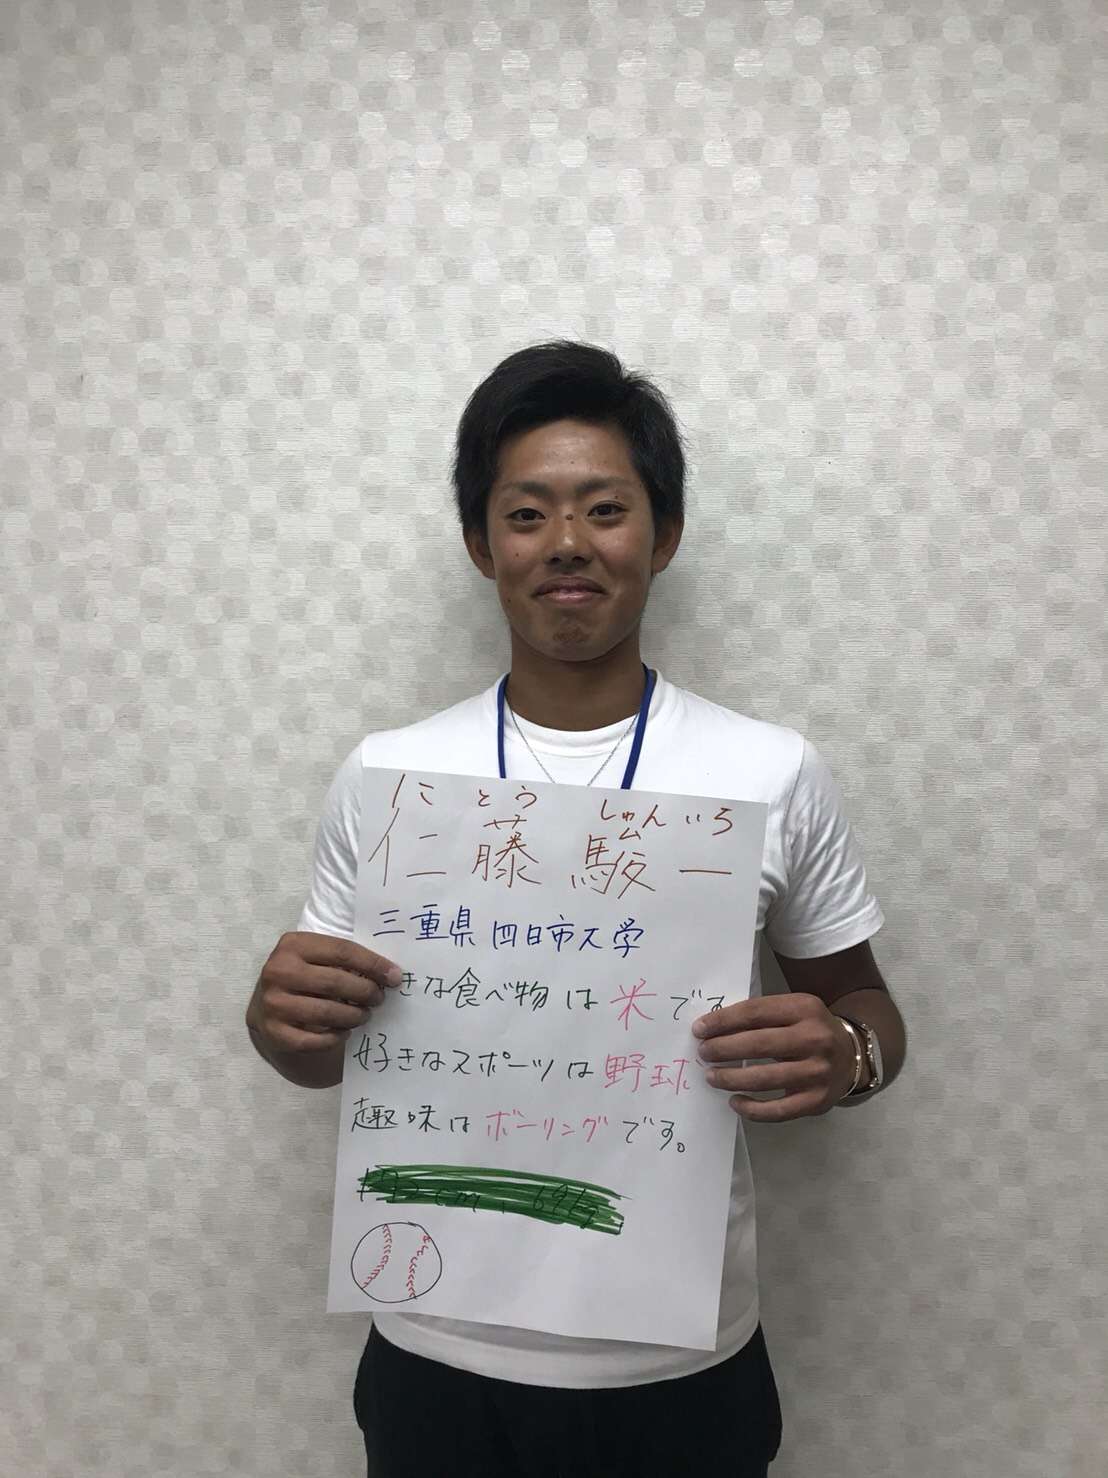 にとう しゅんいち
仁藤 駿一
三重県 四日市大学
きな食べ物は米です
好きなスポーツは野球
趣味はボーリングです。
172cm、